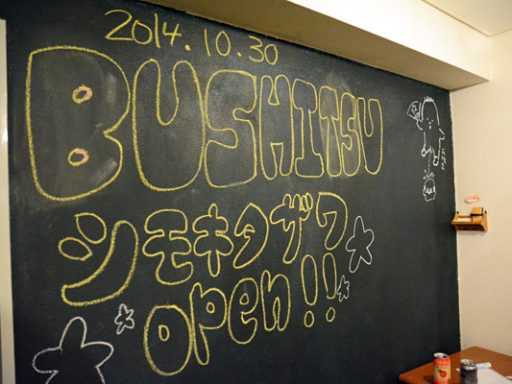 2014.10.30
BUSHITSU
シモキタザワ
open!!